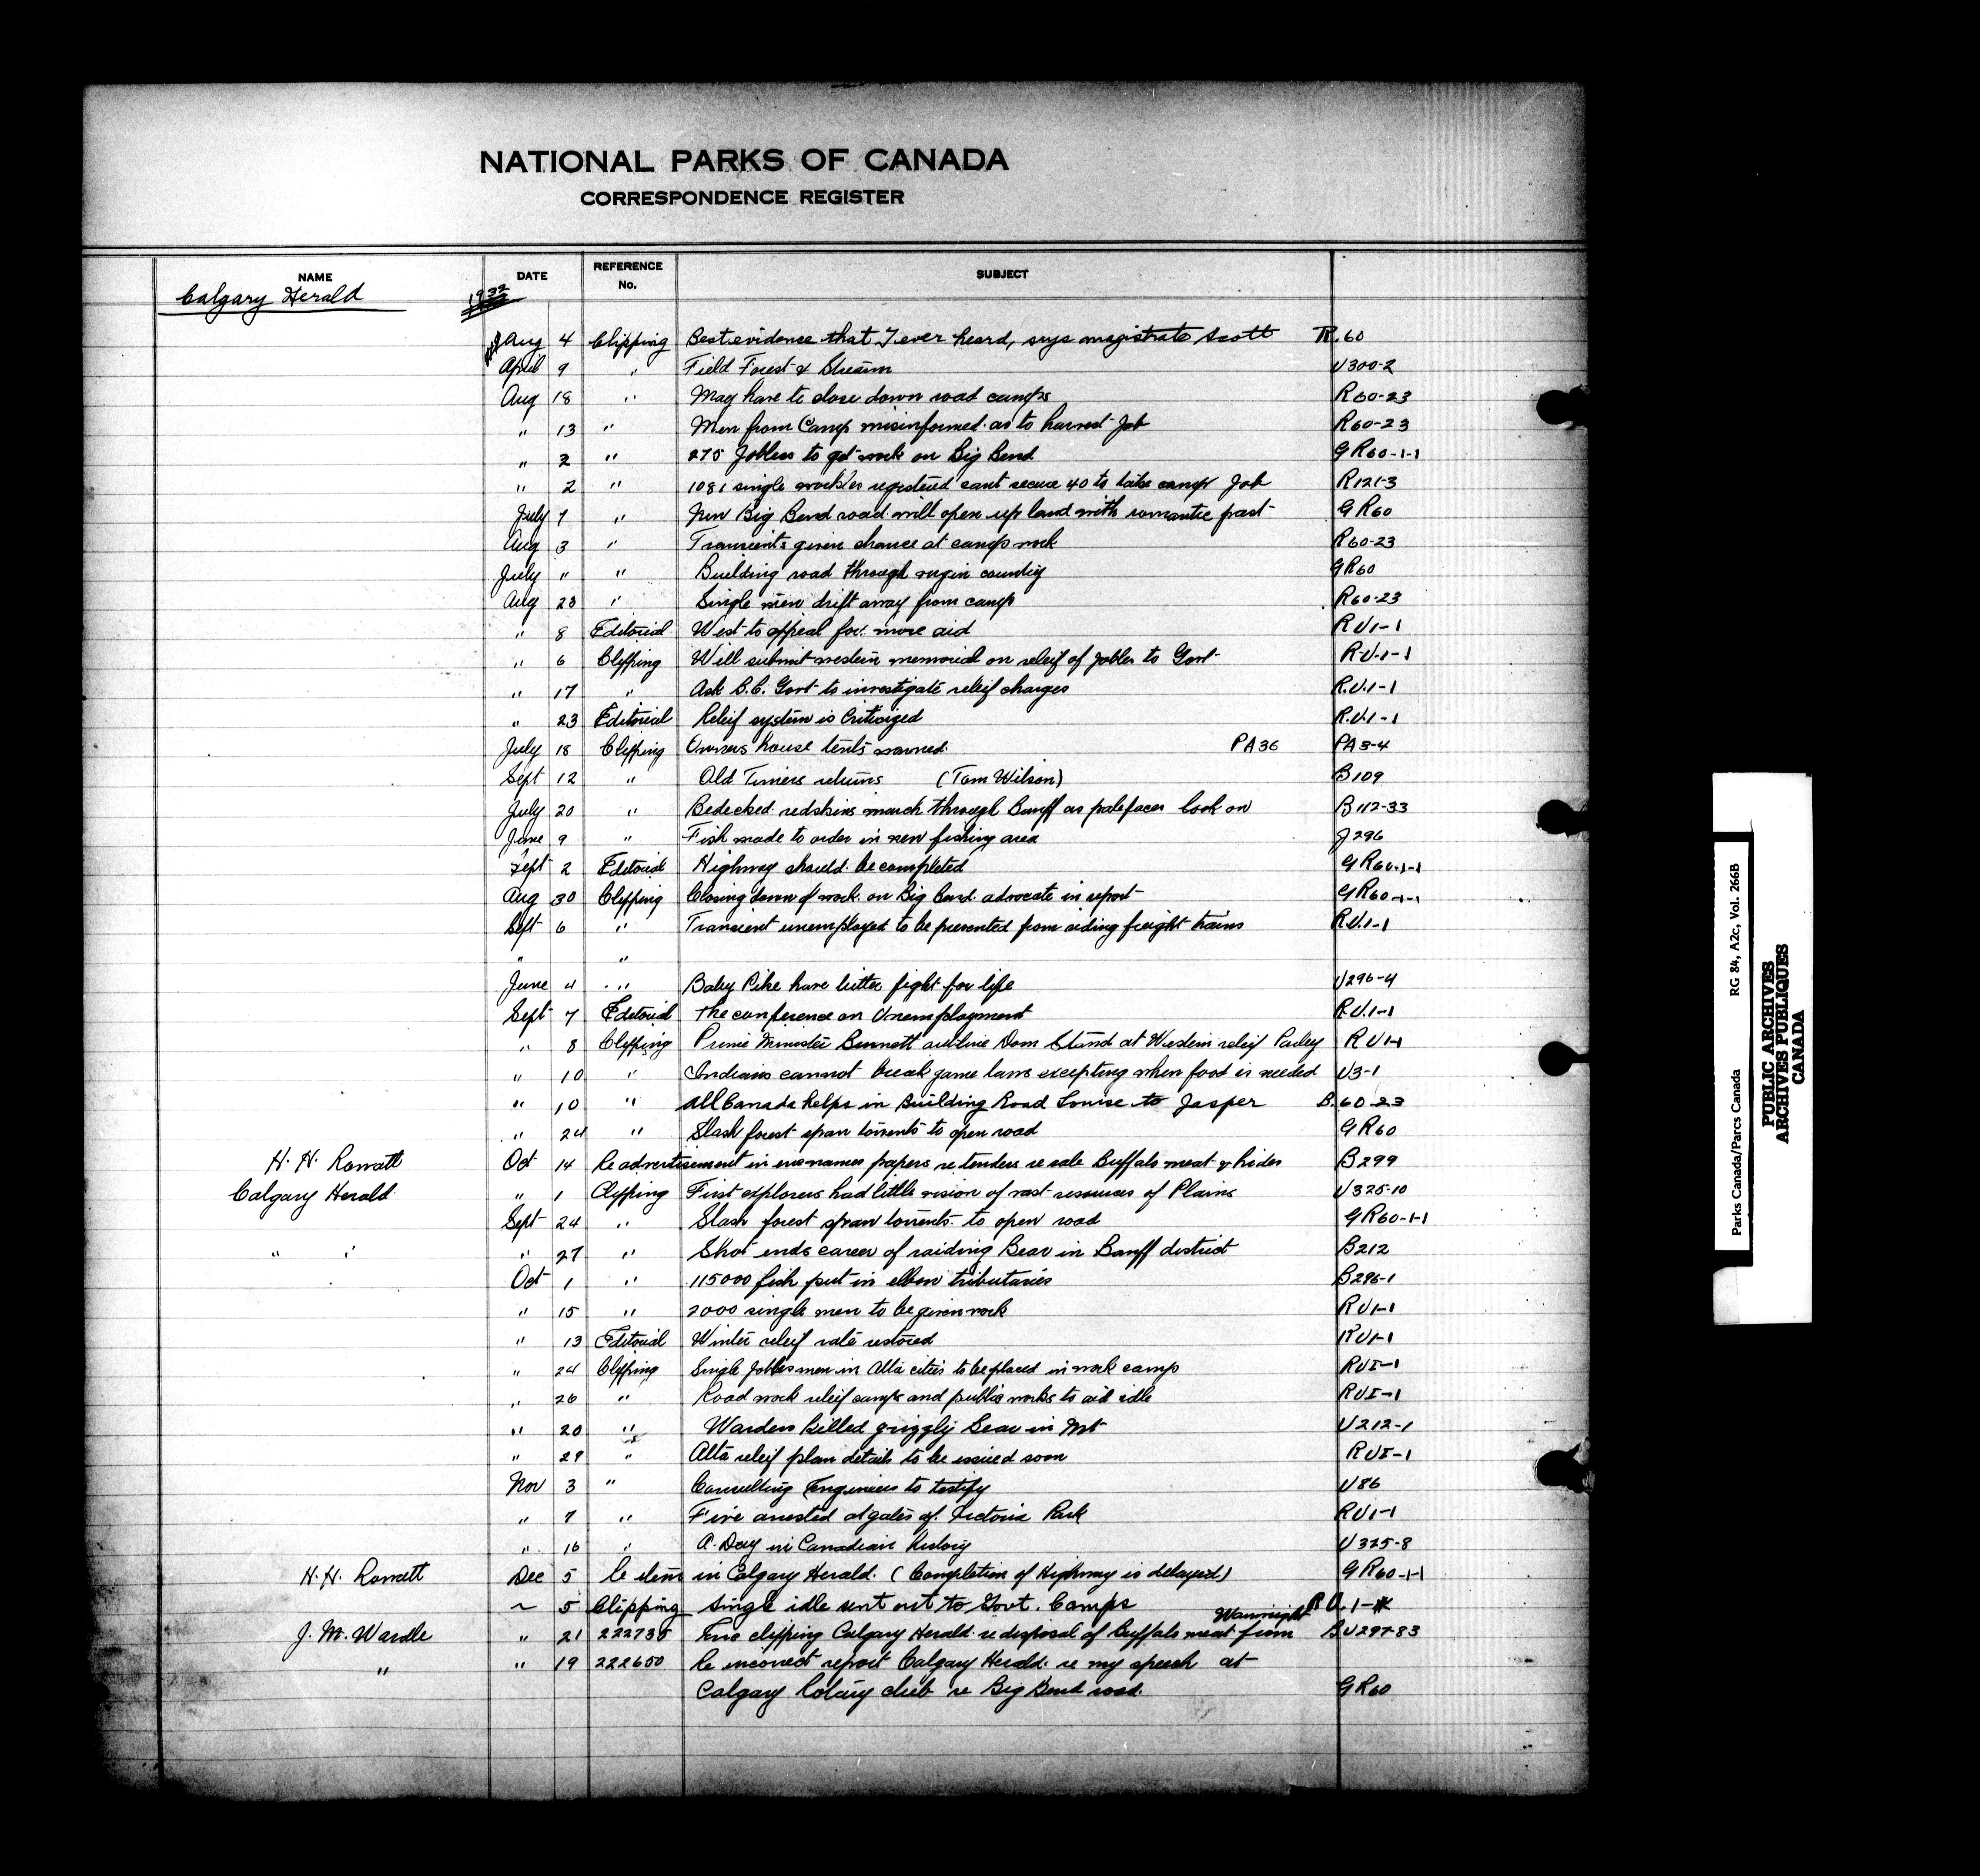 NATIONAL PARKS OF CANADA
CORRESPONDENCE REGISTER
NAME DATE REFERENCE No. SUBJECT
Calgary Herald 1932
Aug 4 Clipping Best evidence that I ever heard, says magistrate Scott R.60
April 9 " Field Forest & Stream U300-2
Aug 18 " May have to close down road camps R60-23
" 13 " Men from Camp misinformed as to harvest Job R60-23
" 2 " 275 Jobless to get work on Big Bend GR60-1-1
" 2 " 1081 single workers registered cant secure 40 to take camp Job R121-3
July 7 " New Big Bend road will open up land with romantic past GR60
Aug 3 " Transients given chance at camp work R60-23
July " " Building road through virgin country GR60
Aug 23 " Single men drift away from camp R60-23
" 8 Editorial West to appeal for more aid RU1-1
" 6 Clipping Will submit western memorial on releif of Jobles to Govt R.U.1-1
" 17 " Ask B.C. Govt to investigate releif charges R.U.1-1
" 23 Editorial Releif system is Criticized R.U.1-1
July 18 Clipping Owners house tents warned. PA36 PA3-4
Sept 12 " Old Timers returns (Tom Wilson) B109
July 20 " Bedecked redskins march through Banff as palefaces look on B112-33
June 9 " Fish made to order in new fishing area J296
Sept 2 Editorial Highway should be completed GR60-1-1
Aug 30 Clipping Closing down of work on Big Bend advocate in report GR60-1-1
Sept 6 " Transient unemployed to be prevented from riding freight trains R.U.1-1
" "
June 4 " Baby Pike have bitter fight for life U296-4
Sept 7 Editorial The conference on Unemployment R.U.1-1
" 8 Clipping Prime Minister Bennett outline Dom Stand at Western releif Parley RU1-1
" 10 " Indians cannot break game laws excepting when food is needed U3-1
" 10 " All Canada helps in Building Road Louise to Jasper B.60-23
" 24 " Slash forest span torrents to open road GR60
H. H. Rowatt Oct 14 Re advertisement in papers re tenders re sale Buffalo meat & hides B299
Calgary Herald " 1 Clipping First explorers had little vision of vast resources of Plains U325-10
Sept 24 " Slash forest span torrents to open road GR60-1-1
" " " 27 " Shot ends career of raiding Bear in Banff district B212
Oct 1 " 115000 fish put in elbow tributaries B296-1
" 15 " 2000 single men to be given work RU1-1
" 13 Editorial Winter releif rate restored RU1-1
" 24 Clipping Single Jobless men in Alta cities to be placed in work camp RUI-1
" 26 " Road work releif camps and public works to aid idle RUI-1
" 20 " Warden killed grizzly Bear in Mt U212-1
" 29 " Alta releif plan details to be issued soon RUI-1
Nov 3 " Consulting Engineers to testify U86
" 7 " Five arrested at gates of Victoria Park RU1-1
" 16 " A Day in Canadian history U325-8
H. H. Rowatt Dec 5 Re item in Calgary Herald. (Completion of Highway is delayed) GR60-1-1
~ 5 Clipping Single idle sent out to Govt. Camps RU.1-
J. M. Wardle " 21 222735 Enc clipping Calgary Herald re disposal of Buffalo meat from Wainwright BU297-83
" " 19 222650 Re incorrect report Calgary Herald. re my speech at
Calgary Rotary club re Big Bend road. GR60
Parks Canada/Parcs Canada RG 84, A2c, Vol. 266B
PUBLIC ARCHIVES
ARCHIVES PUBLIQUES
CANADA